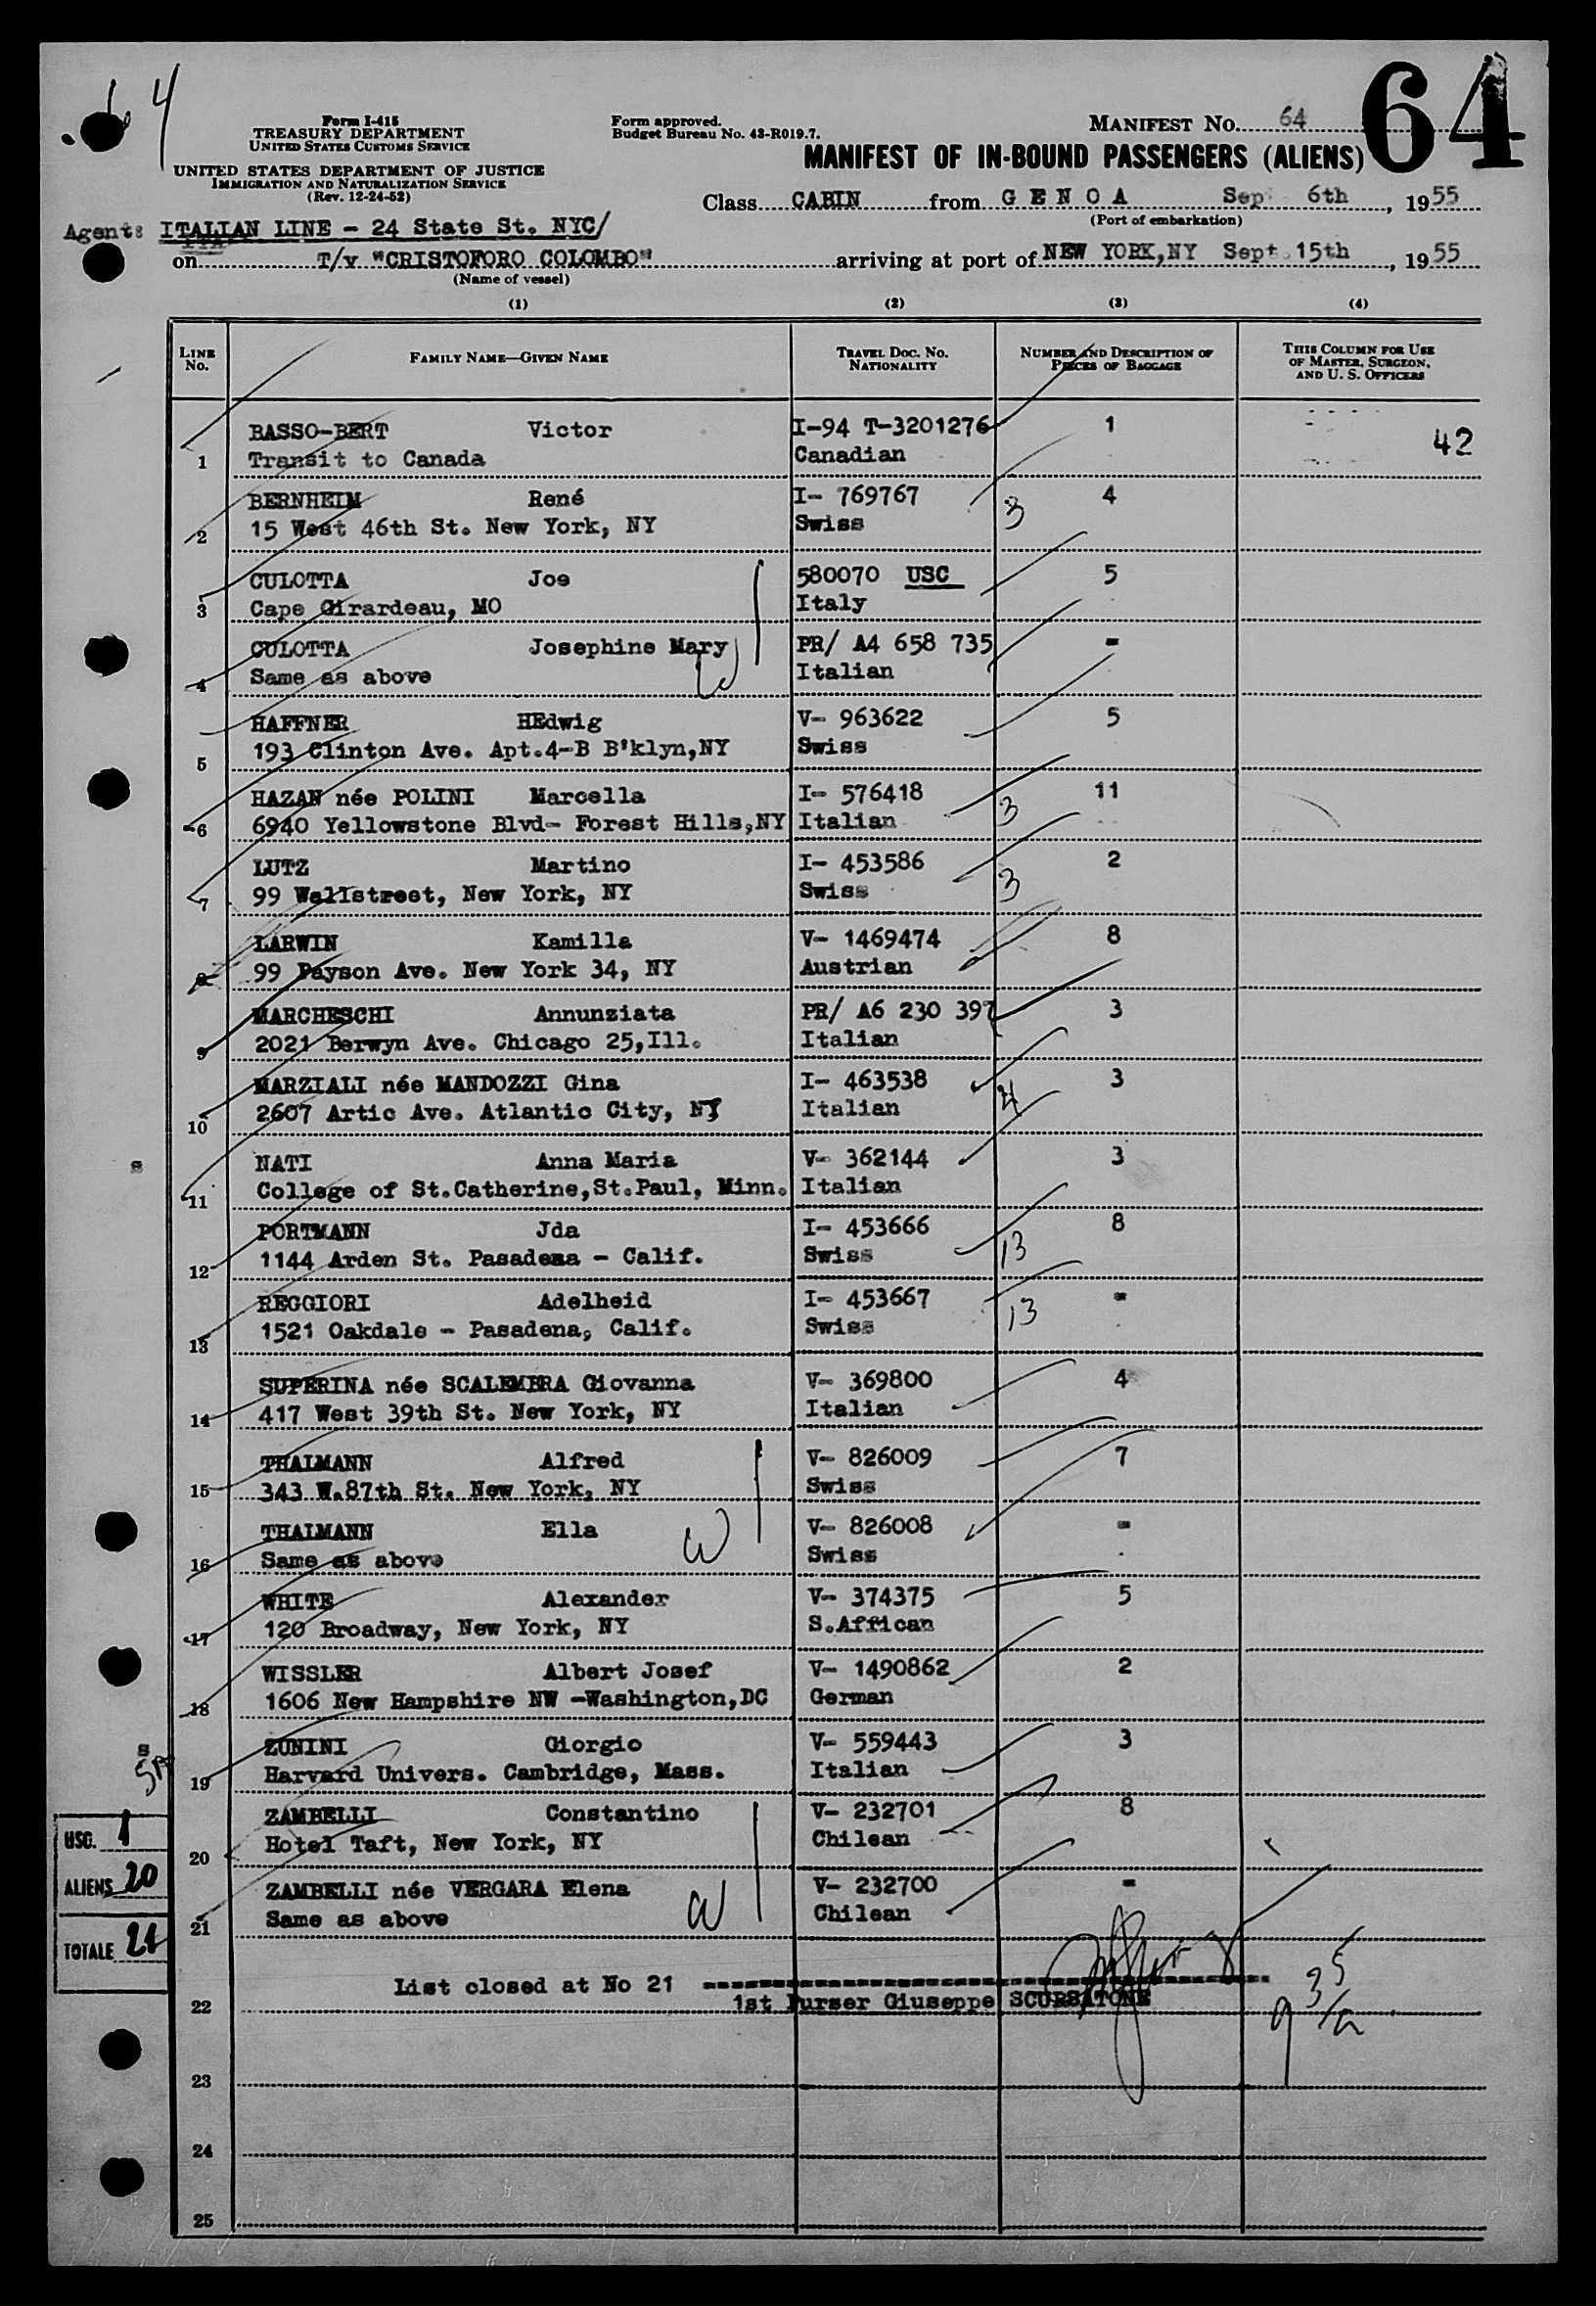 64
Form I-415
TREASURY DEPARTMENT
UNITED STATES CUSTOMS SERVICE
UNITED STATES DEPARTMENT OF JUSTICE
IMMIGRATION AND NATURALIZATION SERVICE
(Rev. 12-24-52)
Form approved.
Budget Bureau No. 43-R019.7.
MANIFEST No. 64
64
MANIFEST OF IN-BOUND PASSENGERS (ALIENS)
Class CABIN from G E N O A Sep 6th, 1955
(Port of embarkation)
Agent: ITALIAN LINE - 24 State St. NYC/
on T/v "CRISTOFORO COLOMBO" arriving at port of NEW YORK,NY Sept. 15th, 1955
(Name of vessel)
(1) (2) (3) (4)
LINE No. FAMILY NAME—GIVEN NAME TRAVEL DOC. No. NATIONALITY NUMBER AND DESCRIPTION OF PIECES OF BAGGAGE THIS COLUMN FOR USE OF MASTER, SURGEON, AND U. S. OFFICERS
1 BASSO-BERT Victor I-94 T-3201276 1 42
Transit to Canada Canadian
2 BERNHEIM René I- 769767 3 4
15 West 46th St. New York, NY Swiss
3 CULOTTA Joe 580070 USC 5
Cape Girardeau, MO Italy
4 CULOTTA Josephine Mary W PR/ A4 658 735 -
Same as above Italian
5 HAFFNER HEdwig V- 963622 5
193 Clinton Ave. Apt.4-B B'klyn,NY Swiss
6 HAZAN née POLINI Marcella I- 576418 3 11
6940 Yellowstone Blvd- Forest Hills,NY Italian
7 LUTZ Martino I- 453586 3 2
99 Wallstreet, New York, NY Swiss
8 LARWIN Kamilla V- 1469474 8
99 Payson Ave. New York 34, NY Austrian
9 MARCHESCHI Annunziata PR/ A6 230 397 3
2021 Berwyn Ave. Chicago 25,Ill. Italian
10 MARZIALI née MANDOZZI Gina I- 463538 3
2607 Artic Ave. Atlantic City, NJ Italian
s
11 NATI Anna Maria V- 362144 3
College of St.Catherine,St.Paul, Minn. Italian
12 PORTMANN Jda I- 453666 13 8
1144 Arden St. Pasadena - Calif. Swiss
13 REGGIORI Adelheid I- 453667 13 -
1521 Oakdale - Pasadena, Calif. Swiss
14 SUPERINA née SCALEMBRA Giovanna V- 369800 4
417 West 39th St. New York, NY Italian
15 THALMANN Alfred V- 826009 7
343 W.87th St. New York, NY Swiss
16 THALMANN Ella W V- 826008 -
Same as above Swiss
17 WHITE Alexander V- 374375 5
120 Broadway, New York, NY S.Affican
18 WISSLER Albert Josef V- 1490862 2
1606 New Hampshire NW -Washington,DC German
s
19 ZUNINI Giorgio V- 559443 3
Harvard Univers. Cambridge, Mass. Italian
20 ZAMBELLI Constantino V- 232701 8
Hotel Taft, New York, NY Chilean
21 ZAMBELLI née VERGARA Elena W V- 232700 -
Same as above Chilean
USC. 1
ALIENS 20
TOTALE 21
List closed at No 21
22 1st Purser Giuseppe SCURSATONE
23
24
25